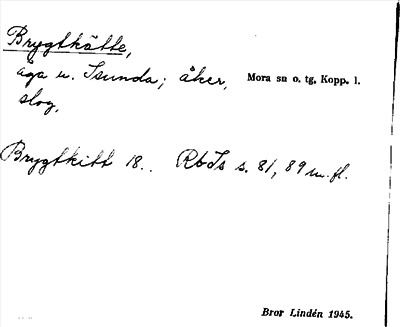 Brygtkätte,
äga u. Isunda; åker, Mora sn o. tg, Kopp. l.
slog,
Brygtkitt 18.. RbIs s. 81, 89 m. fl.
Bror Lindén 1945.